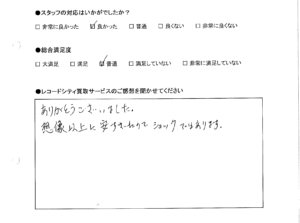 ●スタッフの対応はいかがでしたか？
□ 非常に良かった ☑ 良かった □ 普通 □ 良くない □ 非常に良くない
●総合満足度
□ 大満足 □ 満足 ☑ 普通 □ 満足していない □ 非常に満足していない
●レコードシティ買取サービスのご感想を聞かせてください
ありがとうございました。
想像以上に安すぎたのでショックでもあります。